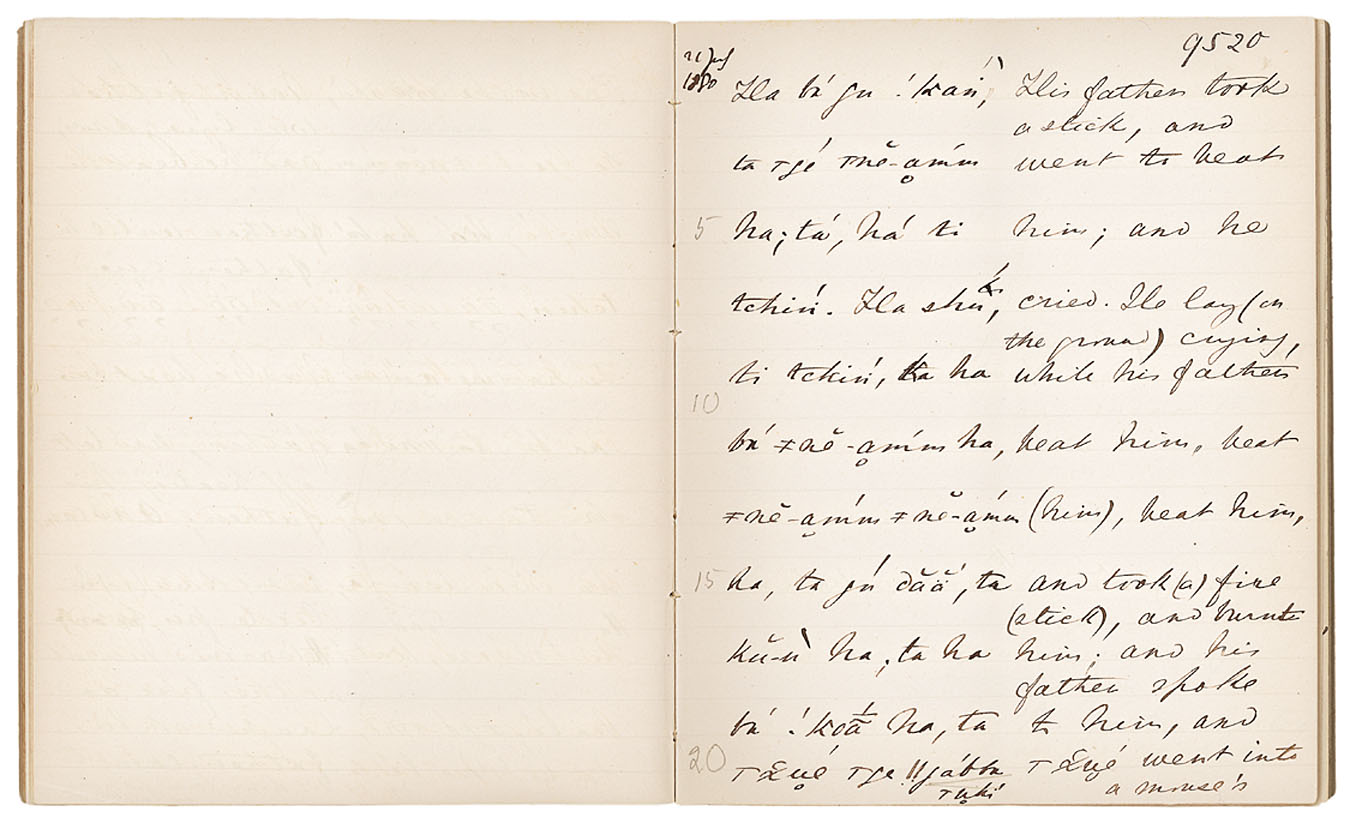 9520
21 July
1880
Ha bá gu !kań, His father took
a stick, and
ta ꞇgé ꞇnĕ-ạmím went to beat
5 ha; tá, há ti him; and he
tchiń. Ha shú, cried. He lay (on
the ground) crying,
ti tchiń, ta ha while his father
10
bá ǂnĕ-ạmím ha, beat him, beat
ǂnĕ-ạmím ǂnĕ-ạmím (him), beat him,
15 ha, ta gú dăắ, ta and took (a) fire
(stick), and burnt
kŭ-ù ha; ta ha him; and his
father spoke
bá !koā́ ha, ta to him, and
20 ꞇge ǁgábba went into
a mouse's